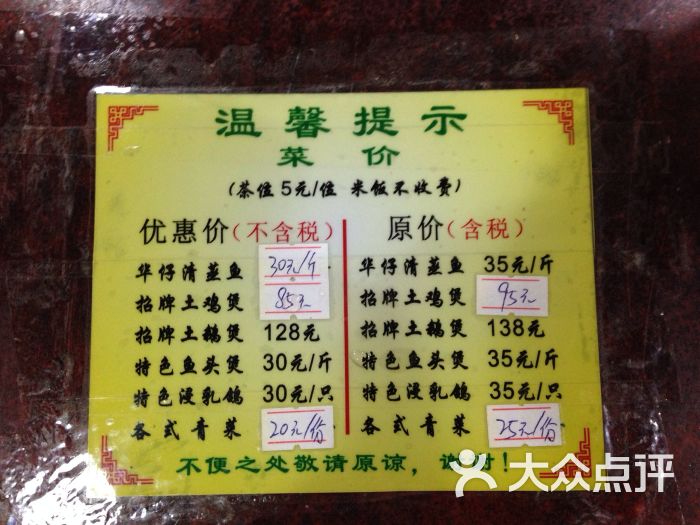 温馨提示
菜 价
(茶位5元/位 米饭不收费)
优惠价(不含税)
华仔清蒸鱼 30元/斤
招牌土鸡煲 85元
招牌土鹅煲 128元
特色鱼头煲 30元/斤
特色浸乳鸽 30元/只
各式青菜 20元/份
原价(含税)
华仔清蒸鱼 35元/斤
招牌土鸡煲 95元
招牌土鹅煲 138元
特色鱼头煲 35元/斤
特色浸乳鸽 35元/只
各式青菜 25元/份
不便之处敬请原谅，谢谢！
大众点评